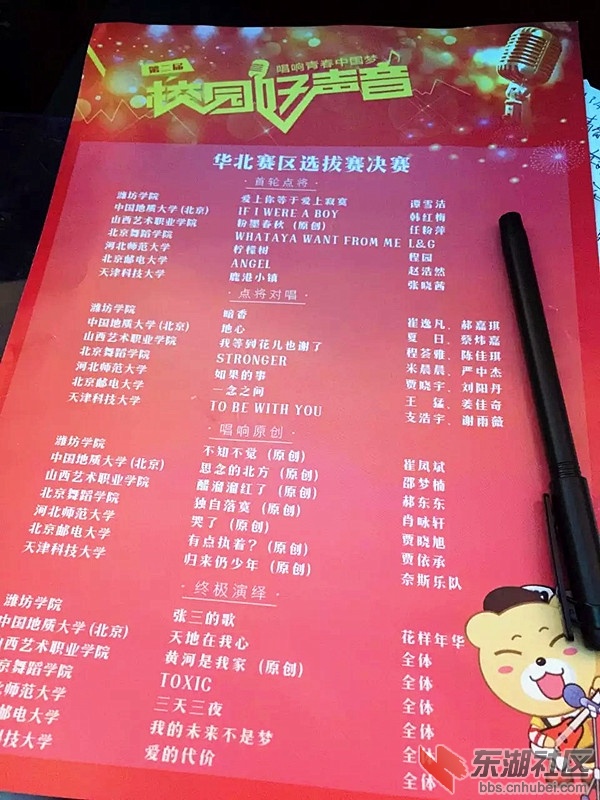 第二届
唱响青春中国梦
校园好声音
华北赛区选拔赛决赛
·首轮点将·
潍坊学院 爱上你等于爱上寂寞 谭雪洁
中国地质大学(北京) IF I WERE A BOY 韩红梅
山西艺术职业学院 粉墨春秋(原创) 任粉萍
北京舞蹈学院 WHATAYA WANT FROM ME L&G
河北师范大学 柠檬树 程园
北京邮电大学 ANGEL 赵浩然
天津科技大学 鹿港小镇 张晓茜
·点将对唱·
潍坊学院 暗香 崔逸凡、郝嘉琪
中国地质大学(北京) 地心 夏 日、蔡炜嘉
山西艺术职业学院 我等到花儿也谢了 程荟雅、陈佳琪
北京舞蹈学院 STRONGER 米晨晨、严中杰
河北师范大学 如果的事 贾晓宇、刘阳丹
北京邮电大学 一念之间 王 猛、姜佳奇
天津科技大学 TO BE WITH YOU 支浩宇、谢雨薇
·唱响原创·
潍坊学院 不知不觉(原创) 崔凤斌
中国地质大学(北京) 思念的北方(原创) 邵梦楠
山西艺术职业学院 醯溜溜红了(原创) 郝东东
北京舞蹈学院 独自落寞(原创) 肖咏轩
河北师范大学 哭了(原创) 贾晓旭
北京邮电大学 有点执着?(原创) 贾依承
天津科技大学 归来仍少年(原创) 奈斯乐队
·终极演绎·
潍坊学院 张三的歌 花样年华
中国地质大学(北京) 天地在我心 全体
山西艺术职业学院 黄河是我家(原创) 全体
京舞蹈学院 TOXIC 全体
北师范大学 三天三夜 全体
邮电大学 我的未来不是梦 全体
科技大学 爱的代价 全体
东湖社区
bbs.cnhubei.com